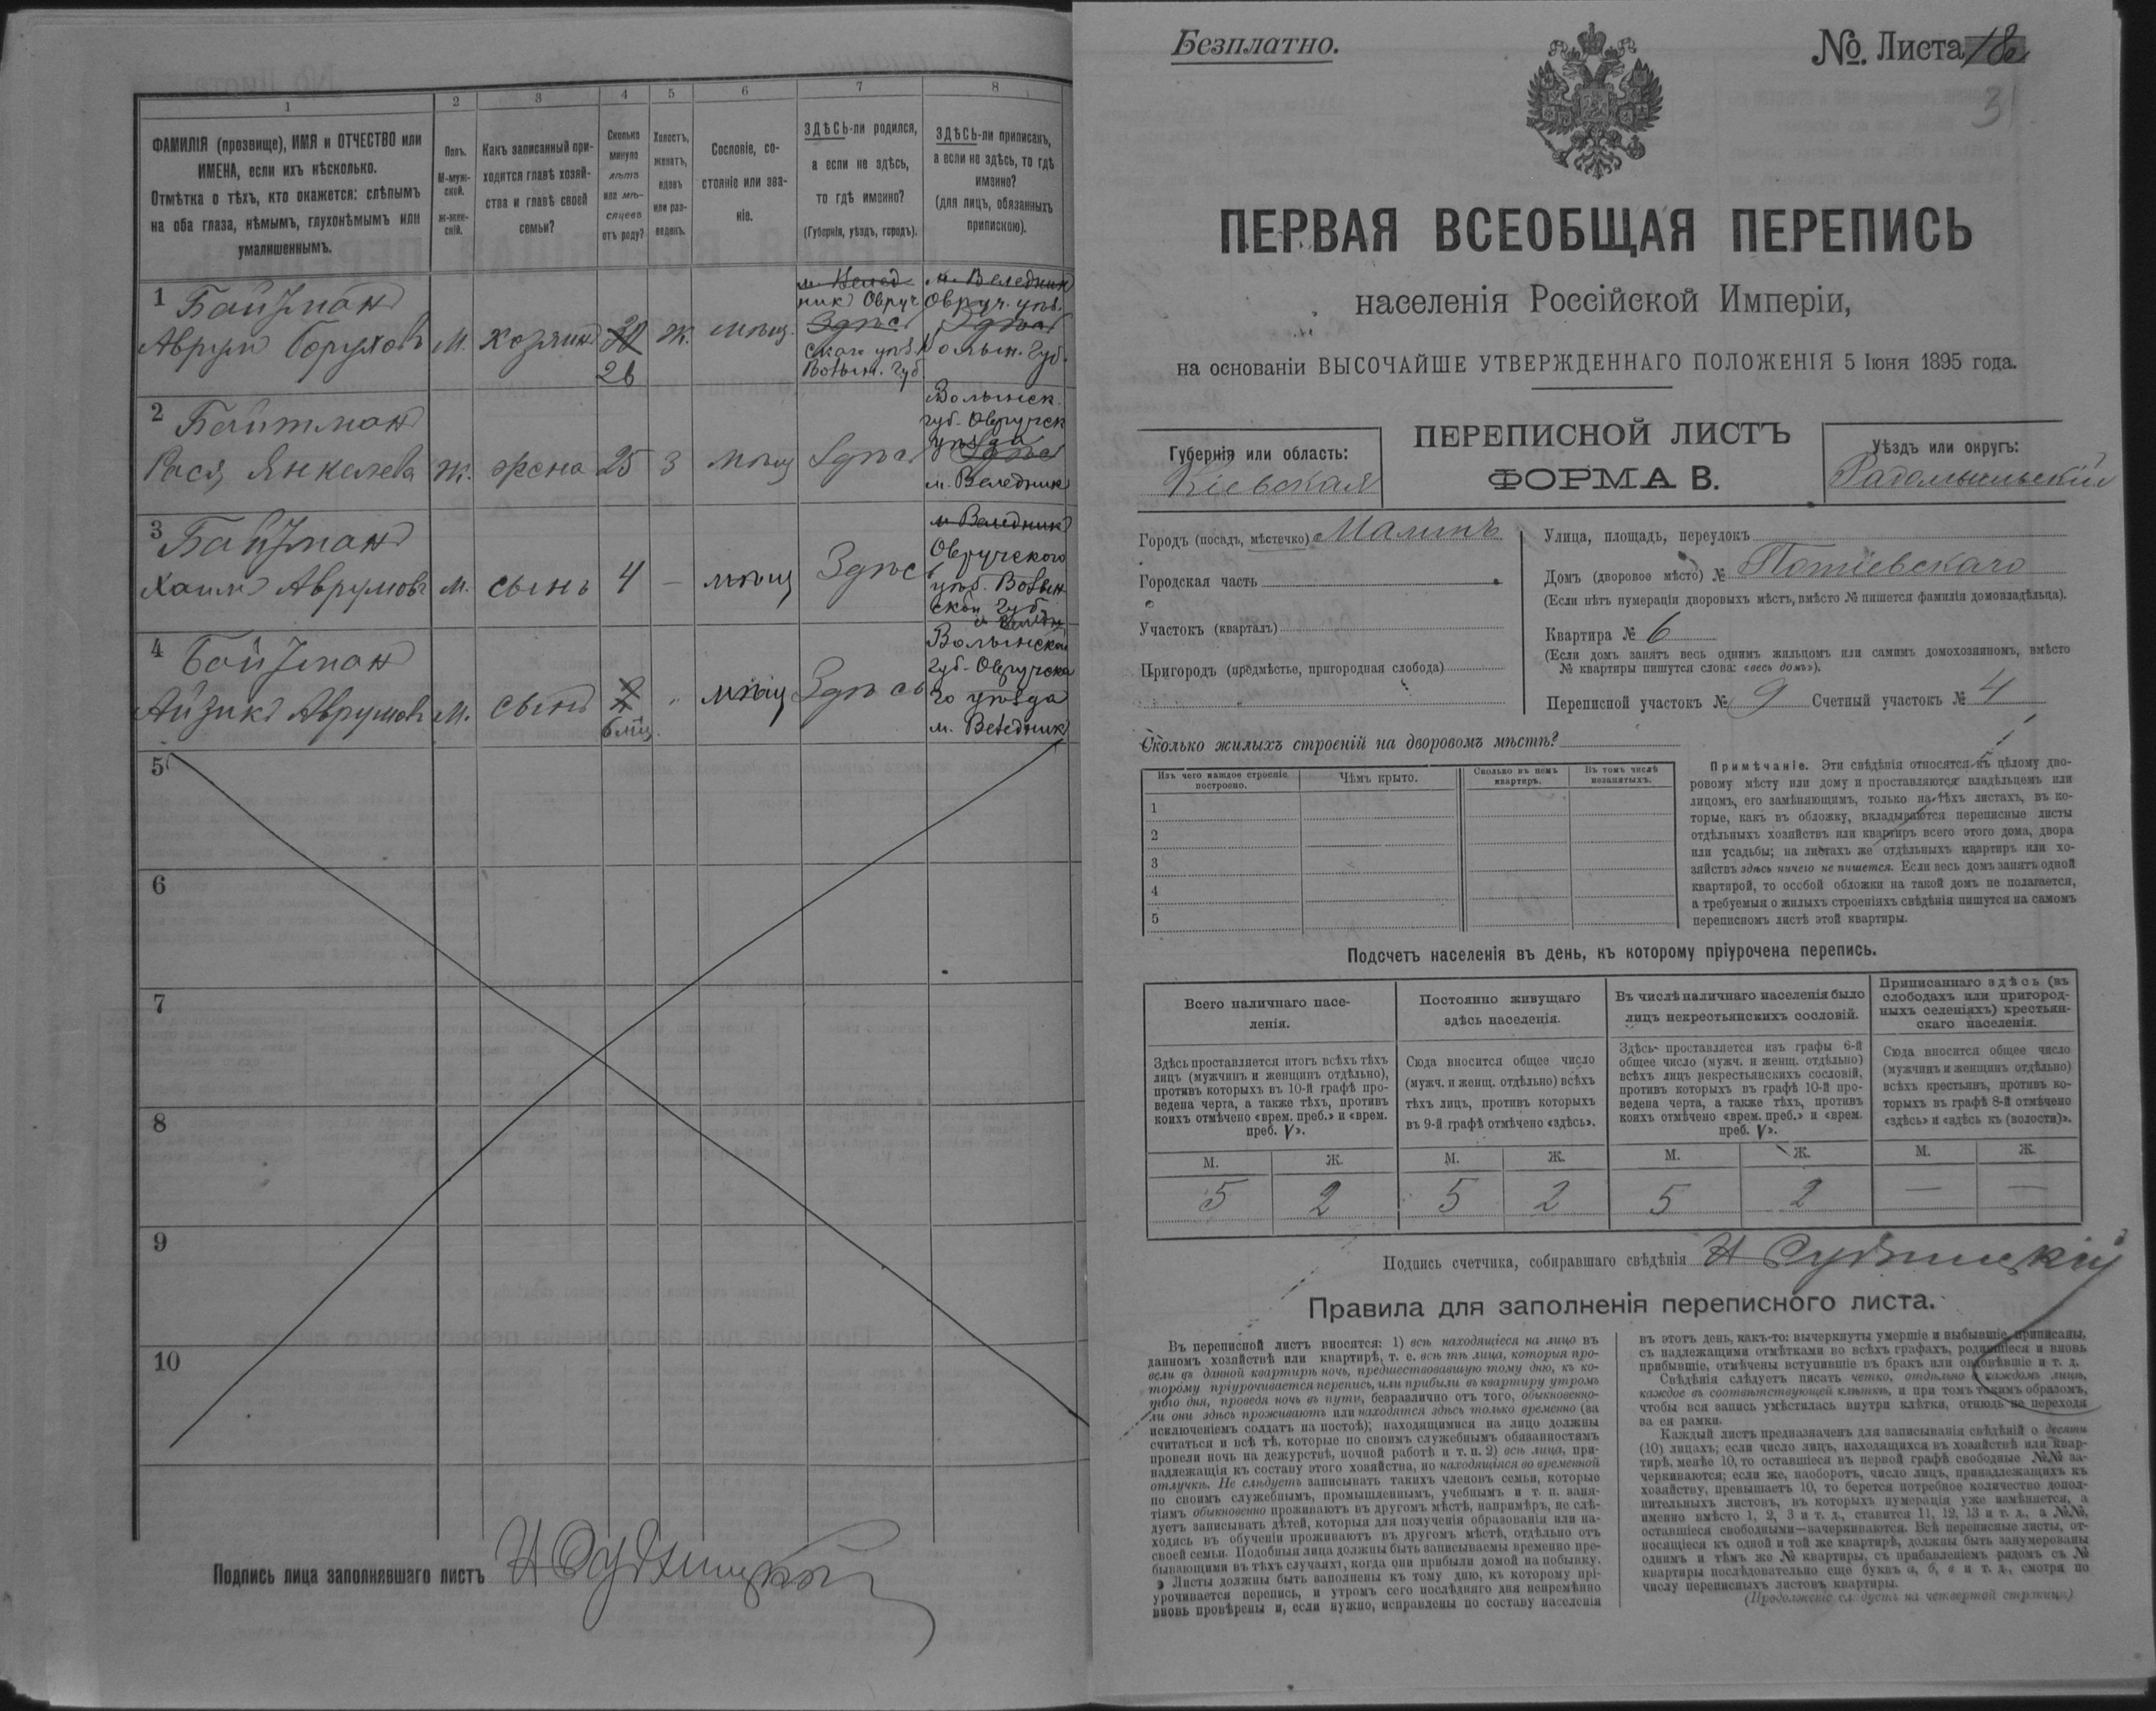 1
2
3
4
5
6
7
8
ФАМИЛІЯ (прозвище), ИМЯ и ОТЧЕСТВО или
ИМЕНА, если ихъ нѣсколько.
Отмѣтка о тѣхъ, кто окажется: слѣпымъ
на оба глаза, нѣмымъ, глухонѣмымъ или
умалишеннымъ.
Полъ.
М-муж-
ской.
Ж-жен-
скій.
Какъ записанный при-
ходится главѣ хозяй-
ства и главѣ своей
семьи?
Сколько
минуло
лѣтъ
или мѣ-
сяцевъ
отъ роду?
Холостъ,
женатъ,
вдовъ
или раз-
веденъ.
Сословіе, со-
стояніе или зва-
ніе.
ЗДѢСЬ-ли родился,
а если не здѣсь,
то гдѣ именно?
(Губернія, уѣздъ, городъ).
ЗДѢСЬ-ли приписанъ,
а если не здѣсь, то гдѣ
именно?
(для лицъ, обязанныхъ
припискою).
1 Байтман
Аврум Борухов М. хозяин 26 Ж. мѣщ.
м. Велед
ник Овруч
Здѣсь
ского уѣз.
Волын. губ
м. Веледник
Овруч. уѣз.
Здѣсь
Волын. губ.
2 Байтман
Рася Янкелева Ж. жена 25 З мѣщ Здѣсь
Волынск.
губ. Овручск
уѣзда
Здѣсь
м. Веледник
3 Байтман
Хаим Аврумовъ М. сынъ 4 — мѣщ Здѣсь
м Веледник
Овручского
уѣз. Волын
ской губ.
4 Байтман
Айзик Аврумов М. сынъ 6 мц. " мѣщ Здѣсь
Волынской
губ. Овручска
го уѣзда
м. Веледник
5
6
7
8
9
10
Подпись лица заполнявшаго листъ
Безплатно.
№. Листа 18
31
ПЕРВАЯ ВСЕОБЩАЯ ПЕРЕПИСЬ
населенія Россійской Имперіи,
на основаніи ВЫСОЧАЙШЕ УТВЕРЖДЕННАГО ПОЛОЖЕНІЯ 5 Іюня 1895 года.
Губернія или область:
Кіевская
ПЕРЕПИСНОЙ ЛИСТЪ
ФОРМА В.
Уѣздъ или округъ:
Радомысльскій
Городъ (посадъ, мѣстечко) Малинъ
Городская часть
Участокъ (кварталъ)
Пригородъ (предмѣстье, пригородная слобода)
Улица, площадь, переулокъ
Домъ (дворовое мѣсто) № Потіевскаго
(Если нѣтъ нумераціи дворовыхъ мѣстъ, вмѣсто № пишется фамилія домовладѣльца).
Квартира № 6
(Если домъ занятъ весь однимъ жильцомъ или самимъ домохозяиномъ, вмѣсто
№ квартиры пишутся слова: «весь домъ»).
Переписной участокъ № 9 Счетный участокъ № 4
Сколько жилыхъ строеній на дворовомъ мѣстѣ?
Изъ чего каждое строеніе
построено.
Чѣмъ крыто.
Сколько въ немъ
квартиръ.
Въ томъ числѣ
незанятыхъ.
1
2
3
4
5
Примѣчаніе. Эти свѣдѣнія относятся къ цѣлому дво-
ровому мѣсту или дому и проставляются владѣльцемъ или
лицомъ, его замѣняющимъ, только на тѣхъ листахъ, въ ко-
торые, какъ въ обложку, вкладываются переписные листы
отдѣльныхъ хозяйствъ или квартиръ всего этого дома, двора
или усадьбы; на листахъ же отдѣльныхъ квартиръ или хо-
зяйствъ здѣсь ничего не пишется. Если весь домъ занятъ одной
квартирой, то особой обложки на такой домъ не полагается,
а требуемыя о жилыхъ строеніяхъ свѣдѣнія пишутся на самомъ
переписномъ листѣ этой квартиры.
Подсчетъ населенія въ день, къ которому пріурочена перепись.
Всего наличнаго насе-
ленія.
Постоянно живущаго
здѣсь населенія.
Въ числѣ наличнаго населенія было
лицъ некрестьянскихъ сословій.
Приписаннаго здѣсь (въ
слободахъ или пригород-
ныхъ селеніяхъ) крестьян-
скаго населенія.
Здѣсь проставляется итогъ всѣхъ тѣхъ
лицъ (мужчинъ и женщинъ отдѣльно),
противъ которыхъ въ 10-й графѣ про-
ведена черта, а также тѣхъ, противъ
коихъ отмѣчено «врем. преб.» и «врем.
преб. V».
Сюда вносится общее число
(мужч. и женщ. отдѣльно) всѣхъ
тѣхъ лицъ, противъ которыхъ
въ 9-й графѣ отмѣчено «здѣсь».
Здѣсь проставляется изъ графы 6-й
общее число (мужч. и женщ. отдѣльно)
всѣхъ лицъ некрестьянскихъ сословій,
противъ которыхъ въ графѣ 10-й про-
ведена черта, а также тѣхъ, противъ
коихъ отмѣчено «врем. преб.» и «врем.
преб. V».
Сюда вносится общее число
(мужчинъ и женщинъ отдѣльно)
всѣхъ крестьянъ, противъ ко-
торыхъ въ графѣ 8-й отмѣчено
«здѣсь» и «здѣсь къ (волости)».
М. Ж. М. Ж. М. Ж. М. Ж.
5 2 5 2 5 2 — —
Подпись счетчика, собиравшаго свѣдѣнія
Правила для заполненія переписного листа.
Въ переписной листъ вносятся: 1) всѣ находящіеся на лицо въ
данномъ хозяйствѣ или квартирѣ, т. е. всѣ тѣ лица, которыя про-
вели въ данной квартирѣ ночь, предшествовавшую тому дню, къ ко-
торому пріурочивается перепись, или прибыли въ квартиру утромъ
того дня, проведя ночь въ пути, безразлично отъ того, обыкновенно-
ли они здѣсь проживаютъ или находятся здѣсь только временно (за
исключеніемъ солдатъ на постоѣ); находящимися на лицо должны
считаться и всѣ тѣ, которые по своимъ служебнымъ обязанностямъ
провели ночь на дежурствѣ, ночной работѣ и т. п. 2) всѣ лица, при-
надлежащія къ составу этого хозяйства, но находящіяся во временной
отлучкѣ. Не слѣдуетъ записывать такихъ членовъ семьи, которые
по своимъ служебнымъ, промышленнымъ, учебнымъ и т. п. заня-
тіямъ обыкновенно проживаютъ въ другомъ мѣстѣ, напримѣръ, не слѣ-
дуетъ записывать дѣтей, которыя для полученія образованія или на-
ходясь въ обученіи проживаютъ въ другомъ мѣстѣ, отдѣльно отъ
своей семьи. Подобныя лица должны быть записываемы временно пре-
бывающими въ тѣхъ случаяхъ, когда они прибыли домой на побывку.
Листы должны быть заполнены къ тому дню, къ которому прі-
урочивается перепись, и утромъ сего послѣдняго дня непремѣнно
вновь провѣрены и, если нужно, исправлены по составу населенія
въ этотъ день, какъ-то: вычеркнуты умершіе и выбывшіе, приписаны,
съ надлежащими отмѣтками во всѣхъ графахъ, родившіеся и вновь
прибывшіе, отмѣчены вступившіе въ бракъ или овдовѣвшіе и т. д.
Свѣдѣнія слѣдуетъ писать четко, отдѣльно о каждомъ лицѣ,
каждое въ соотвѣтствующей клѣткѣ, и при томъ такимъ образомъ,
чтобы вся запись умѣстилась внутри клѣтки, отнюдь не переходя
за ея рамки.
Каждый листъ предназначенъ для записыванія свѣдѣній о десяти
(10) лицахъ; если число лицъ, находящихся въ хозяйствѣ или квар-
тирѣ, менѣе 10, то оставшіеся въ первой графѣ свободные №№ за-
черкиваются; если же, наоборотъ, число лицъ, принадлежащихъ къ
хозяйству, превышаетъ 10, то берется потребное количество допол-
нительныхъ листовъ, въ которыхъ нумерація уже измѣняется, а
именно вмѣсто 1, 2, 3 и т. д., ставится 11, 12, 13 и т. д., а №№,
оставшіеся свободными—зачеркиваются. Всѣ переписные листы, от-
носящіеся къ одной и той же квартирѣ, должны быть занумерованы
однимъ и тѣмъ же № квартиры, съ прибавленіемъ рядомъ съ №
квартиры послѣдовательно еще буквъ а, б, в и т. д., смотря по
числу переписныхъ листовъ квартиры.
(Продолженіе слѣдуетъ на четвертой страницѣ)